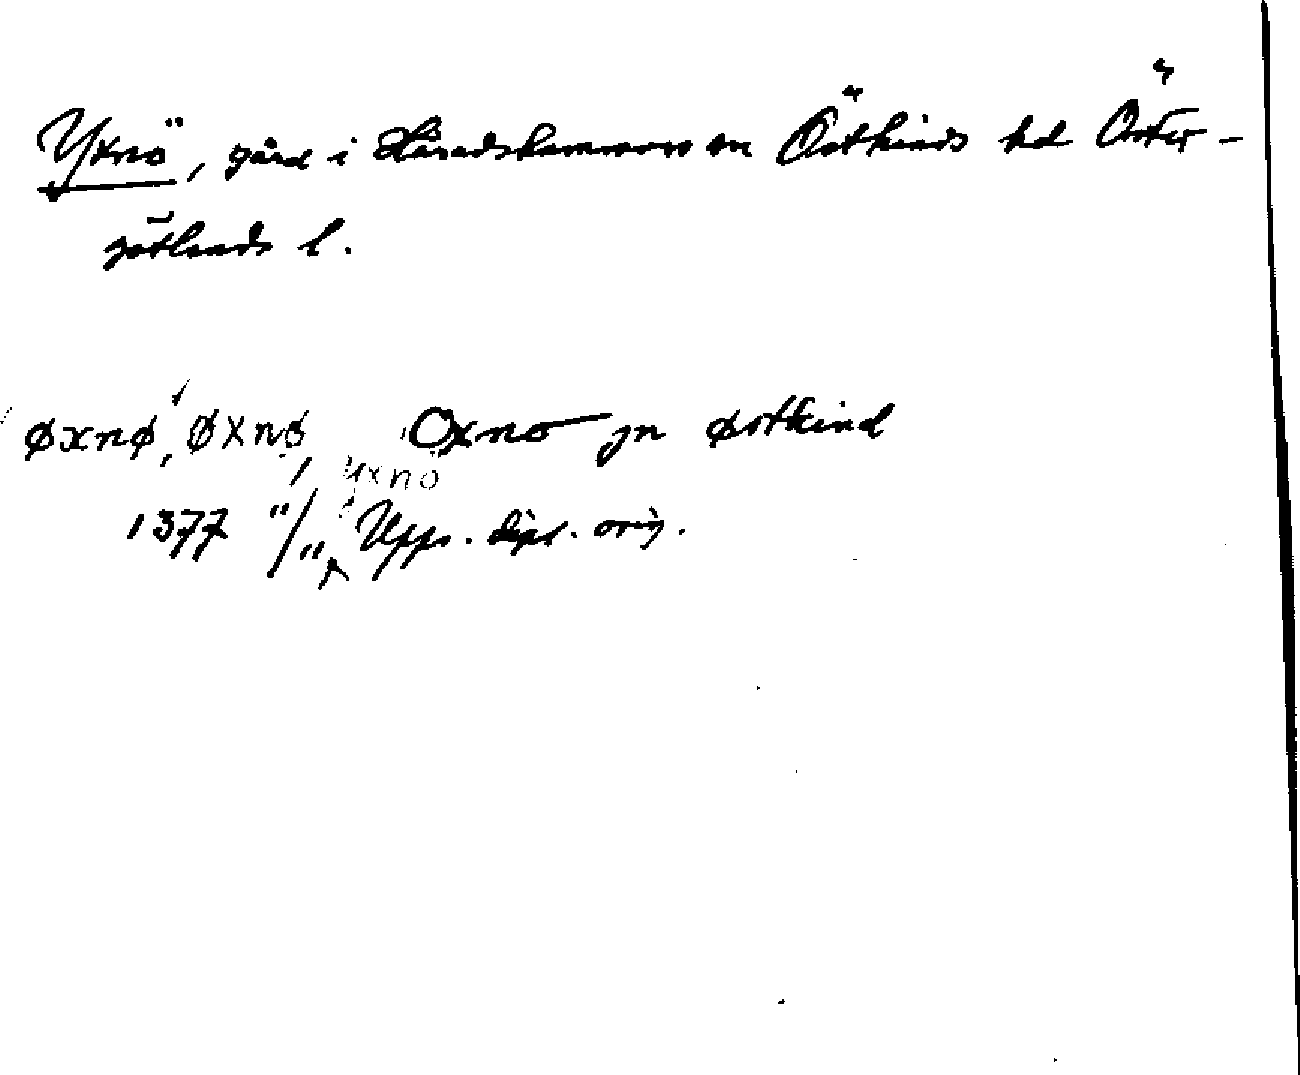 Yxnö, gård i Häradshammars sn Östkinds hd Öster-
götlands l.
øxnø, øxnø, Oxno jn østkind
yxnö
1377 11/11 Upps. dipl. orig.